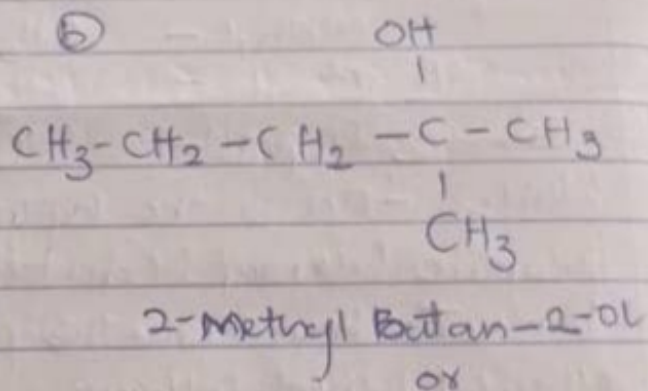 b
OH
|
CH3-CH2-CH2-C-CH3
|
CH3
2-Methyl Butan-2-OL
or